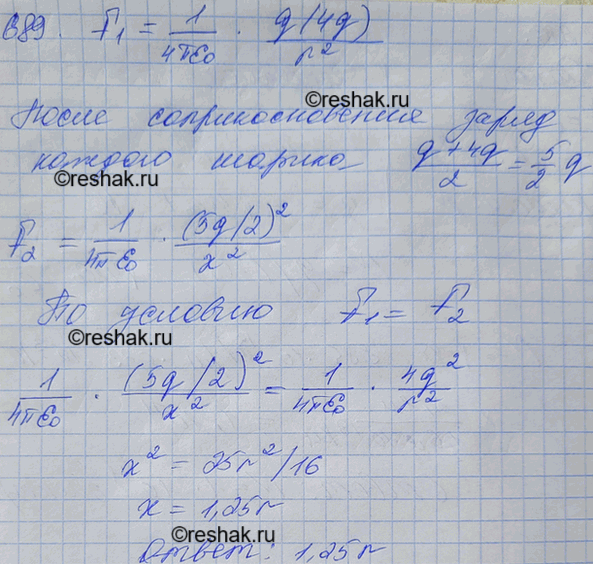 689. F₁ = 1/4πε₀ · q(4q)/r²
©reshak.ru
После соприкосновения заряд
каждого шарика (q+4q)/2 = 5/2 q
©reshak.ru
F₂ = 1/4πε₀ · (5q/2)²/x²
©reshak.ru
По условию F₁ = F₂
©reshak.ru
1/4πε₀ · (5q/2)²/x² = 1/4πε₀ · 4q²/r²
x² = 25r²/16
x = 1,25r
©reshak.ru
Ответ: 1,25r